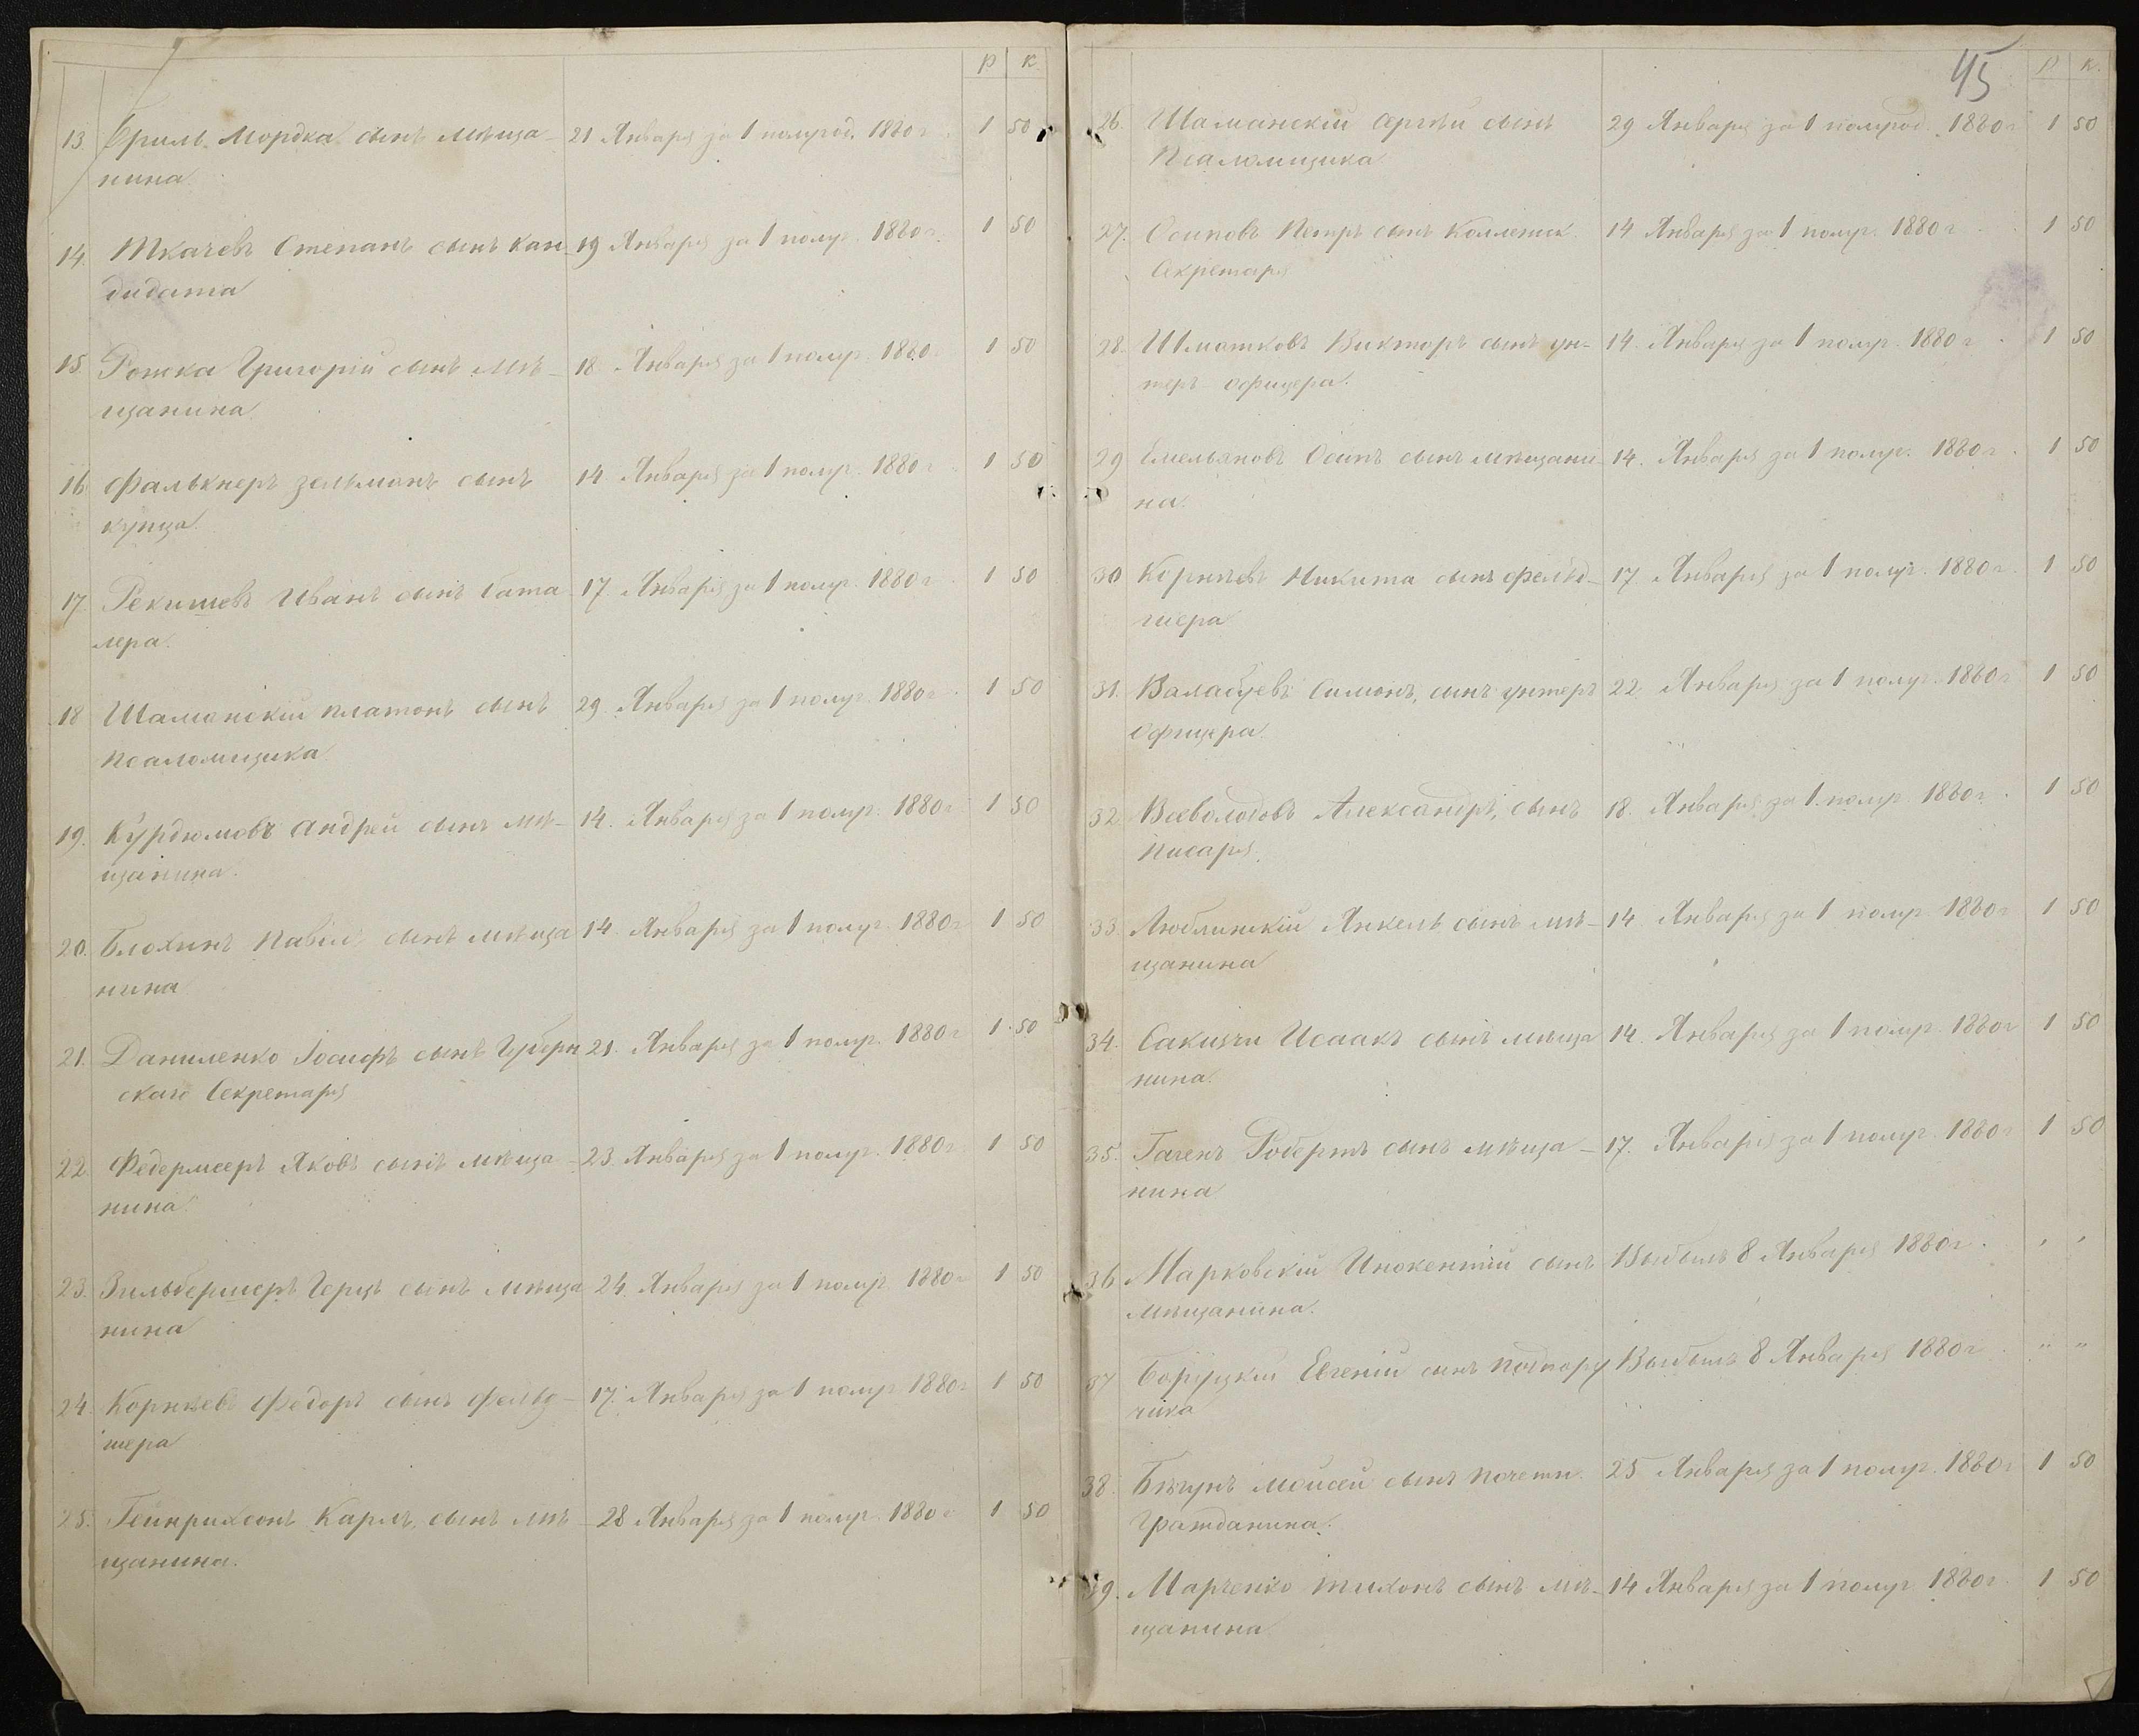 р к.
13. Бриль Мордка сынъ мѣща- 21 Января за 1 полугод. 1880 г. 1 50
нина
14. Ткачевъ Степанъ сынъ кан- 19 Января за 1 полуг. 1880 г. 1 50
дидата
15. Рожка Григорій сынъ мѣ- 18 Января за 1 полуг. 1880 г. 1 50
щанина
16. Фалькнеръ Зельманъ сынъ 14 Января за 1 полуг. 1880 г. 1 50
купца.
17. Рекишевъ Иванъ сынъ бата 17. Января за 1 полуг. 1880 г. 1 50
лера.
18 Шаманскій Платонъ сынъ 29 Января за 1 полуг. 1880 г. 1 50
Псаломщика
19. Курдюмовъ Андрей сынъ мѣ- 14. Января за 1 полуг. 1880 г. 1 50
щанина.
20. Блохинъ Павелъ сынъ мѣща 14. Января за 1 полуг. 1880 г. 1 50
нина
21. Даниленко Іосифъ сынъ Губерн 21. Января за 1 полуг. 1880 г. 1 50
скаго Секретаря
22. Федермееръ Яковъ сынъ мѣща- 23. Января за 1 полуг. 1880 г. 1 50
нина
23. Зильбермееръ Герцъ сынъ мѣща 24. Января за 1 полуг. 1880 г. 1 50
нина
24. Корнѣевъ Федоръ сынъ фельд- 17. Января за 1 полуг. 1880 г. 1 50
шера
25. Гейнрихсонъ Карлъ, сынъ мѣ- 28 Января за 1 полуг. 1880 г. 1 50
щанина.
45
р к.
26. Шаманскій Сергѣй сынъ 29 Января за 1 полугод. 1880 г. 1 50
Псаломщика
27. Осиповъ Петръ сынъ Коллежск. 14 Января за 1 полуг. 1880 г. 1 50
Секретаря
28. Шматковъ Викторъ сынъ ун- 14. Января за 1 полуг. 1880 г. 1 50
теръ офицера.
29 Емельяновъ Осипъ сынъ мѣщани- 14. Января за 1 полуг. 1880 г. 1 50
на.
30 Корнѣевъ Никита сынъ фельд- 17. Января за 1 полуг. 1880 г. 1 50
шера
31. Валабуевъ Симонъ, сынъ унтеръ 22. Января за 1 полуг. 1880 г. 1 50
Офицера.
32. Всеволодовъ Александръ, сынъ 18. Января за 1 полуг. 1880 г. 1 50
Писаря.
33. Люблинскій Янкель сынъ мѣ- 14 Января за 1 полуг. 1880 г. 1 50
щанина
34. Исаакъ сынъ мѣща 14. Января за 1 полуг. 1880 г. 1 50
нина.
35. Гагенъ Робертъ сынъ мѣща- 17. Января за 1 полуг. 1880 г. 1 50
нина
36. Марковскій Инокентій сынъ Выбылъ 8 Января 1880 г. " "
мѣщанина.
37 Боруцкій Евгеній сынъ подпору Выбылъ 8 Января 1880 г. " "
чика
38. Бѣгунъ Моисей сынъ почетн. 25 Января за 1 полуг. 1880 г. 1 50
Гражданина.
39. Марченко Тихонъ сынъ мѣ- 14 Января за 1 полуг. 1880 г. 1 50
щанина